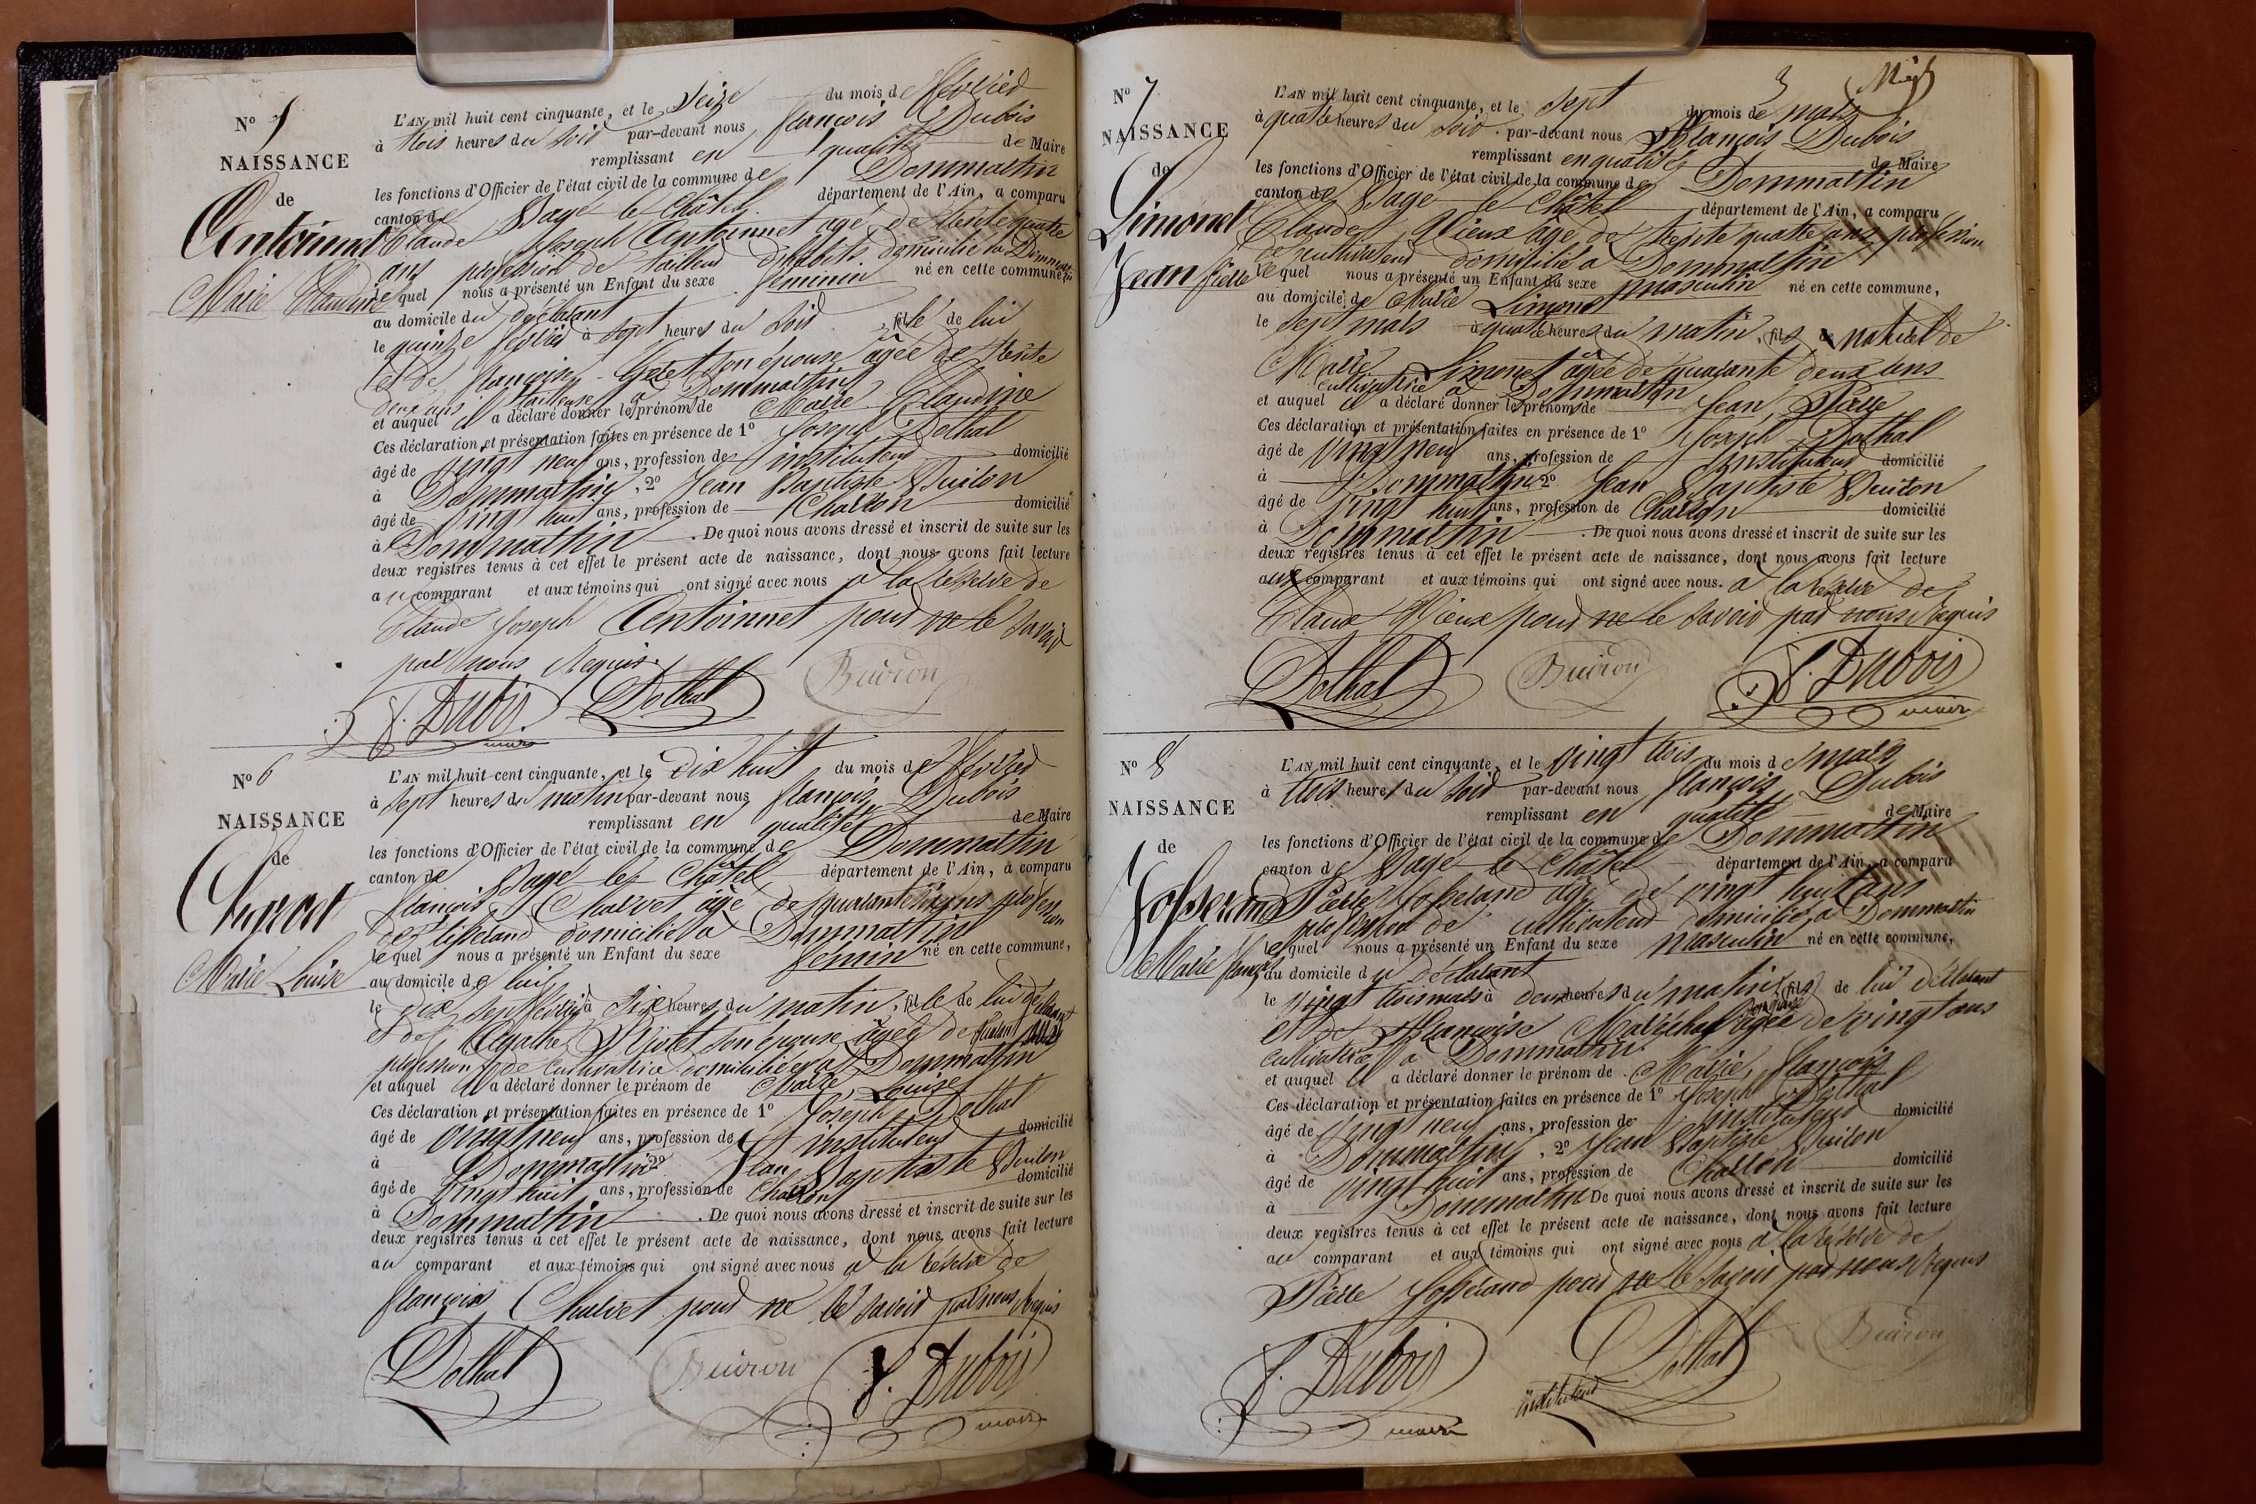 N° 5
NAISSANCE
de
Antoinnet
Marie Claudine
L'AN mil huit cent cinquante, et le Seize du mois de février
à trois heures du soir par-devant nous françois Dubois
remplissant en qualité de Maire
les fonctions d'Officier de l'état civil de la commune de Dommartin
canton de Bagé le Châtel département de l'Ain, a comparu
Claude Joseph Antoinnet agé de trente quatre
ans profession de tailleur d'habits domicilié à Dommartin
lequel nous a présenté un Enfant du sexe feminin né en cette commune,
au domicile du déclarant
le quinze février à sept heures du soir, fille de lui
et de françoise son épouse âgée de trente
deux ans tailleuse à Dommartin
et auquel il a déclaré donner les prénoms de Marie Claudine
Ces déclaration et présentation faites en présence de 1° Joseph Dothal
âgé de vingt neuf ans, profession de instituteur domicilié
à Dommartin, 2° Jean Baptiste Buiron
âgé de vingt huit ans, profession de Charron domicilié
à Dommartin. De quoi nous avons dressé et inscrit de suite sur les
deux registres tenus à cet effet le présent acte de naissance, dont nous avons fait lecture
au comparant et aux témoins qui ont signé avec nous à la réserve de
Claude Joseph Antoinnet pour ne le savoir
par nous Requis.
F. Dubois Dothal Buiron
maire
N° 6
NAISSANCE
de
Charvet
Marie Louise
L'AN mil huit cent cinquante, et le dix huit du mois de février
à sept heures du matin par-devant nous françois Dubois
remplissant en qualité de Maire
les fonctions d'Officier de l'état civil de la commune de Dommartin
canton de Bagé le Châtel département de l'Ain, a comparu
françois Charvet âgé de quarante ans profession
de tisserand domicilié à Dommartin
lequel nous a présenté un Enfant du sexe féminin né en cette commune,
au domicile de lui
le dix sept février à dix heures du matin, fille de lui déclarant
& de Agathe son épouse agée de
profession de cultivatrice domiciliée à Dommartin
et auquel il a déclaré donner le prénom de Marie Louise
Ces déclaration et présentation faites en présence de 1° Joseph Dothal
âgé de vingt neuf ans, profession de instituteur domicilié
à Dommartin 2° Jean Baptiste Buiron
âgé de vingt huit ans, profession de Charron domicilié
à Dommartin. De quoi nous avons dressé et inscrit de suite sur les
deux registres tenus à cet effet le présent acte de naissance, dont nous avons fait lecture
au comparant et aux témoins qui ont signé avec nous à la réserve de
françois Charvet pour ne le savoir par nous Requis
Dothal Buiron F. Dubois
maire
3
N° 7
NAISSANCE
de
Limonet
Jean Pierre
L'AN mil huit cent cinquante, et le sept du mois de mars
à quatre heures du soir par-devant nous François Dubois
remplissant en qualité de Maire
les fonctions d'Officier de l'état civil de la commune de Dommartin
canton de Bagé le Châtel département de l'Ain, a comparu
Claude Vieux agé de trente quatre ans profession
de cultivateur domicilié à Dommartin
lequel nous a présenté un Enfant du sexe masculin né en cette commune,
au domicile de Marie Limonet
le sept mars à quatre heures du matin, fils naturel de
Marie Limonet âgée de quarante deux ans
cultivatrice à Dommartin
et auquel il a déclaré donner les prénoms de Jean Pierre
Ces déclaration et présentation faites en présence de 1° Joseph Dothal
âgé de vingt neuf ans, profession de instituteur domicilié
à Dommartin 2° Jean Baptiste Buiron
âgé de vingt huit ans, profession de Charron domicilié
à Dommartin. De quoi nous avons dressé et inscrit de suite sur les
deux registres tenus à cet effet le présent acte de naissance, dont nous avons fait lecture
aux comparant et aux témoins qui ont signé avec nous. à la réserve de
Claude Vieux pour ne le savoir par nous Requis
Dothal Buiron F. Dubois
maire
N° 8
NAISSANCE
de
Josserand
Marie françois
L'AN mil huit cent cinquante, et le vingt trois du mois de mars
à trois heures du soir par-devant nous françois Dubois
remplissant en qualité de Maire
les fonctions d'Officier de l'état civil de la commune de Dommartin
canton de Bagé le Châtel département de l'Ain, a comparu
Pierre Josserand agé de vingt huit ans
profession de cultivateur domicilié à Dommartin
lequel nous a présenté un Enfant du sexe masculin né en cette commune,
au domicile du déclarant
le vingt trois mars à deux heures du matin, fils de lui déclarant
et de françoise Maréchal son épouse agée de vingt ans
cultivatrice à Dommartin.
et auquel il a déclaré donner le prénom de Marie, françois
Ces déclaration et présentation faites en présence de 1° Joseph Dothal
âgé de vingt neuf ans, profession de instituteur domicilié
à Dommartin, 2° Jean Baptiste Buiron
âgé de vingt huit ans, profession de Charron domicilié
à Dommartin De quoi nous avons dressé et inscrit de suite sur les
deux registres tenus à cet effet le présent acte de naissance, dont nous avons fait lecture
au comparant et aux témoins qui ont signé avec nous à la réserve de
Pierre Josserand pour ne le savoir par nous Requis
F. Dubois Dothal Buiron
maire instituteur